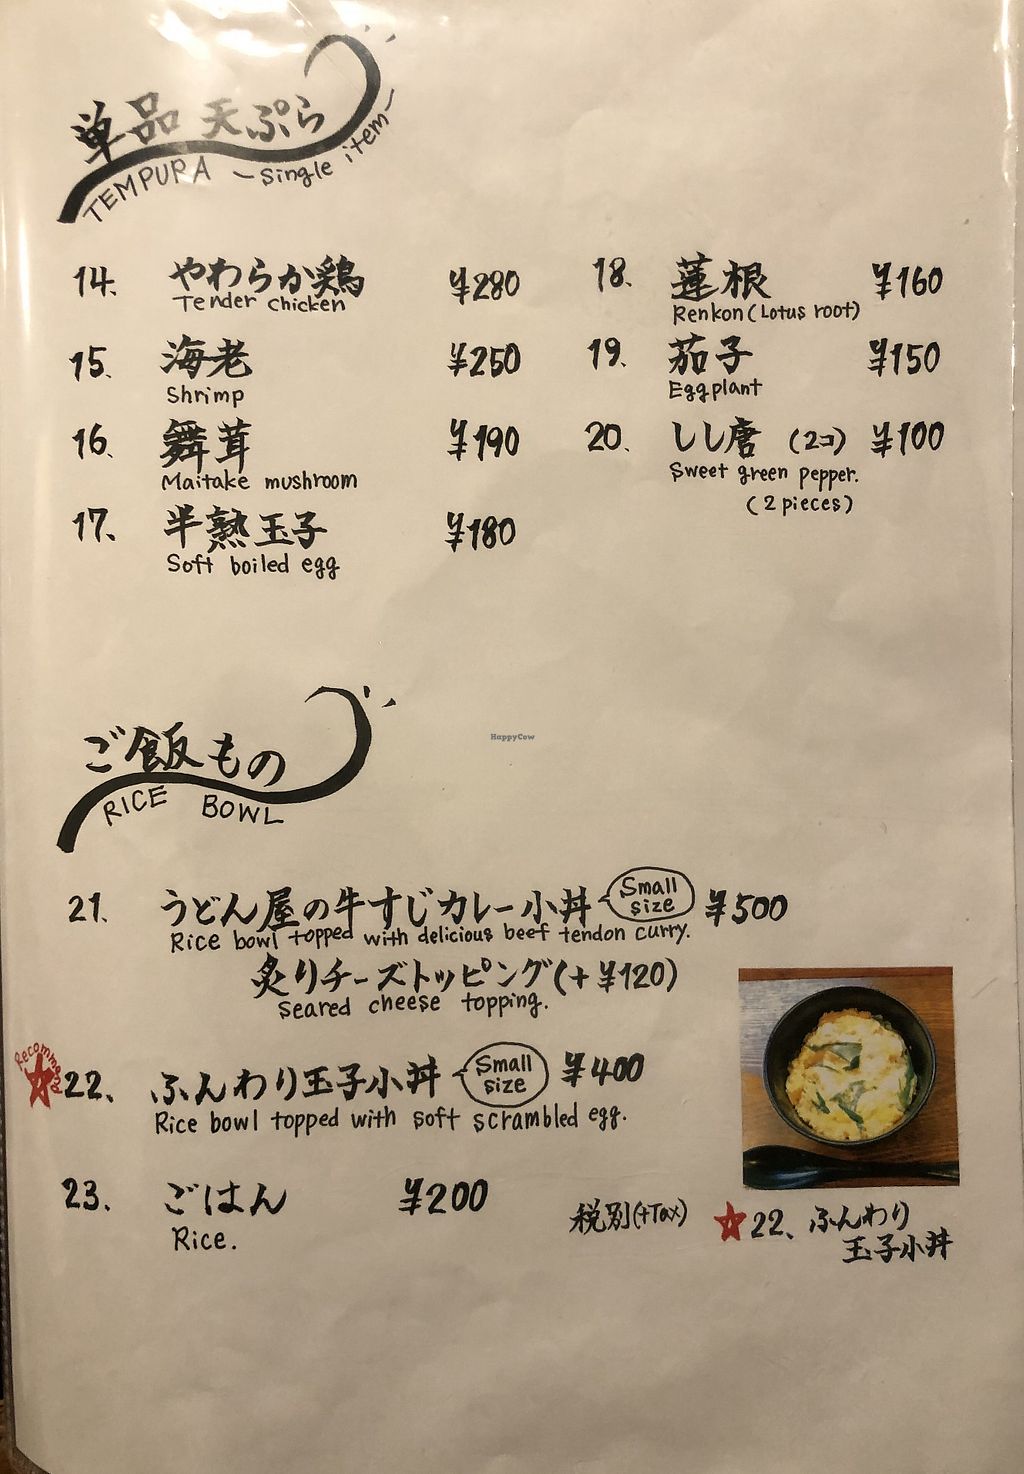 単品 天ぷら
TEMPURA ～Single item～
14. やわらか鶏 ¥280
Tender chicken
15. 海老 ¥250
Shrimp
16. 舞茸 ¥190
Maitake mushroom
17. 半熟玉子 ¥180
Soft boiled egg
18. 蓮根 ¥160
Renkon (Lotus root)
19. 茄子 ¥150
Eggplant
20. しし唐 (2コ) ¥100
Sweet green pepper.
(2 pieces)
HappyCow
ご飯もの
RICE BOWL
21. うどん屋の牛すじカレー小丼 Small size ¥500
Rice bowl topped with delicious beef tendon curry.
炙りチーズトッピング(+¥120)
Seared cheese topping.
Recommend
22、ふんわり玉子小丼 Small size ¥400
Rice bowl topped with soft scrambled egg.
23. ごはん ¥200
Rice.
税別(+Tax)
22、ふんわり
玉子小丼